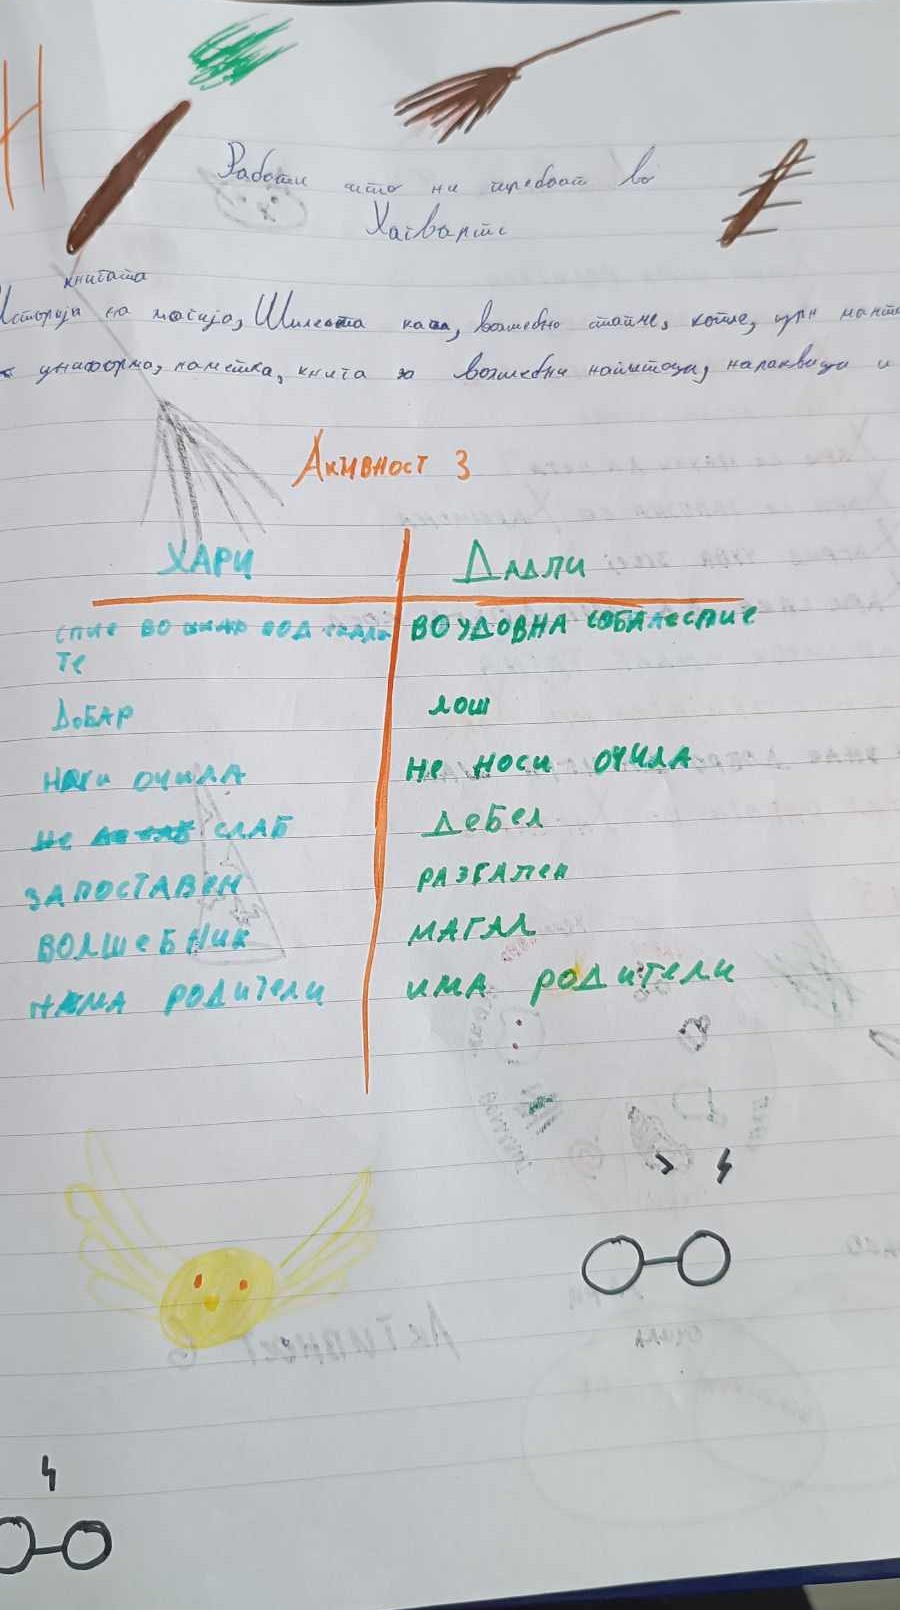 Н
Работи што ни требаат во
Хагвартс
книгата
Историја на магија, Шилеста капа, волшебно стапче, котле, црн мант
униформа, наметка, книга за волшебни напитоци, нараквици и
Активност 3
ХАРИ ДАДЛИ
СПИЕ ВО ШКАФ ПОД СКАЛИ ВО УДОВНА СОБА ЛЕСПИЕ
ТЕ
ДОБАР ЛОШ
НОСИ ОЧИЛА НЕ НОСИ ОЧИЛА
СЛАБ ДЕБЕЛ
ЗАПОСТАВЕН РАЗГАЛЕН
ВОЛШЕБНИК МАГАЛ
НЕМА РОДИТЕЛИ ИМА РОДИТЕЛИ